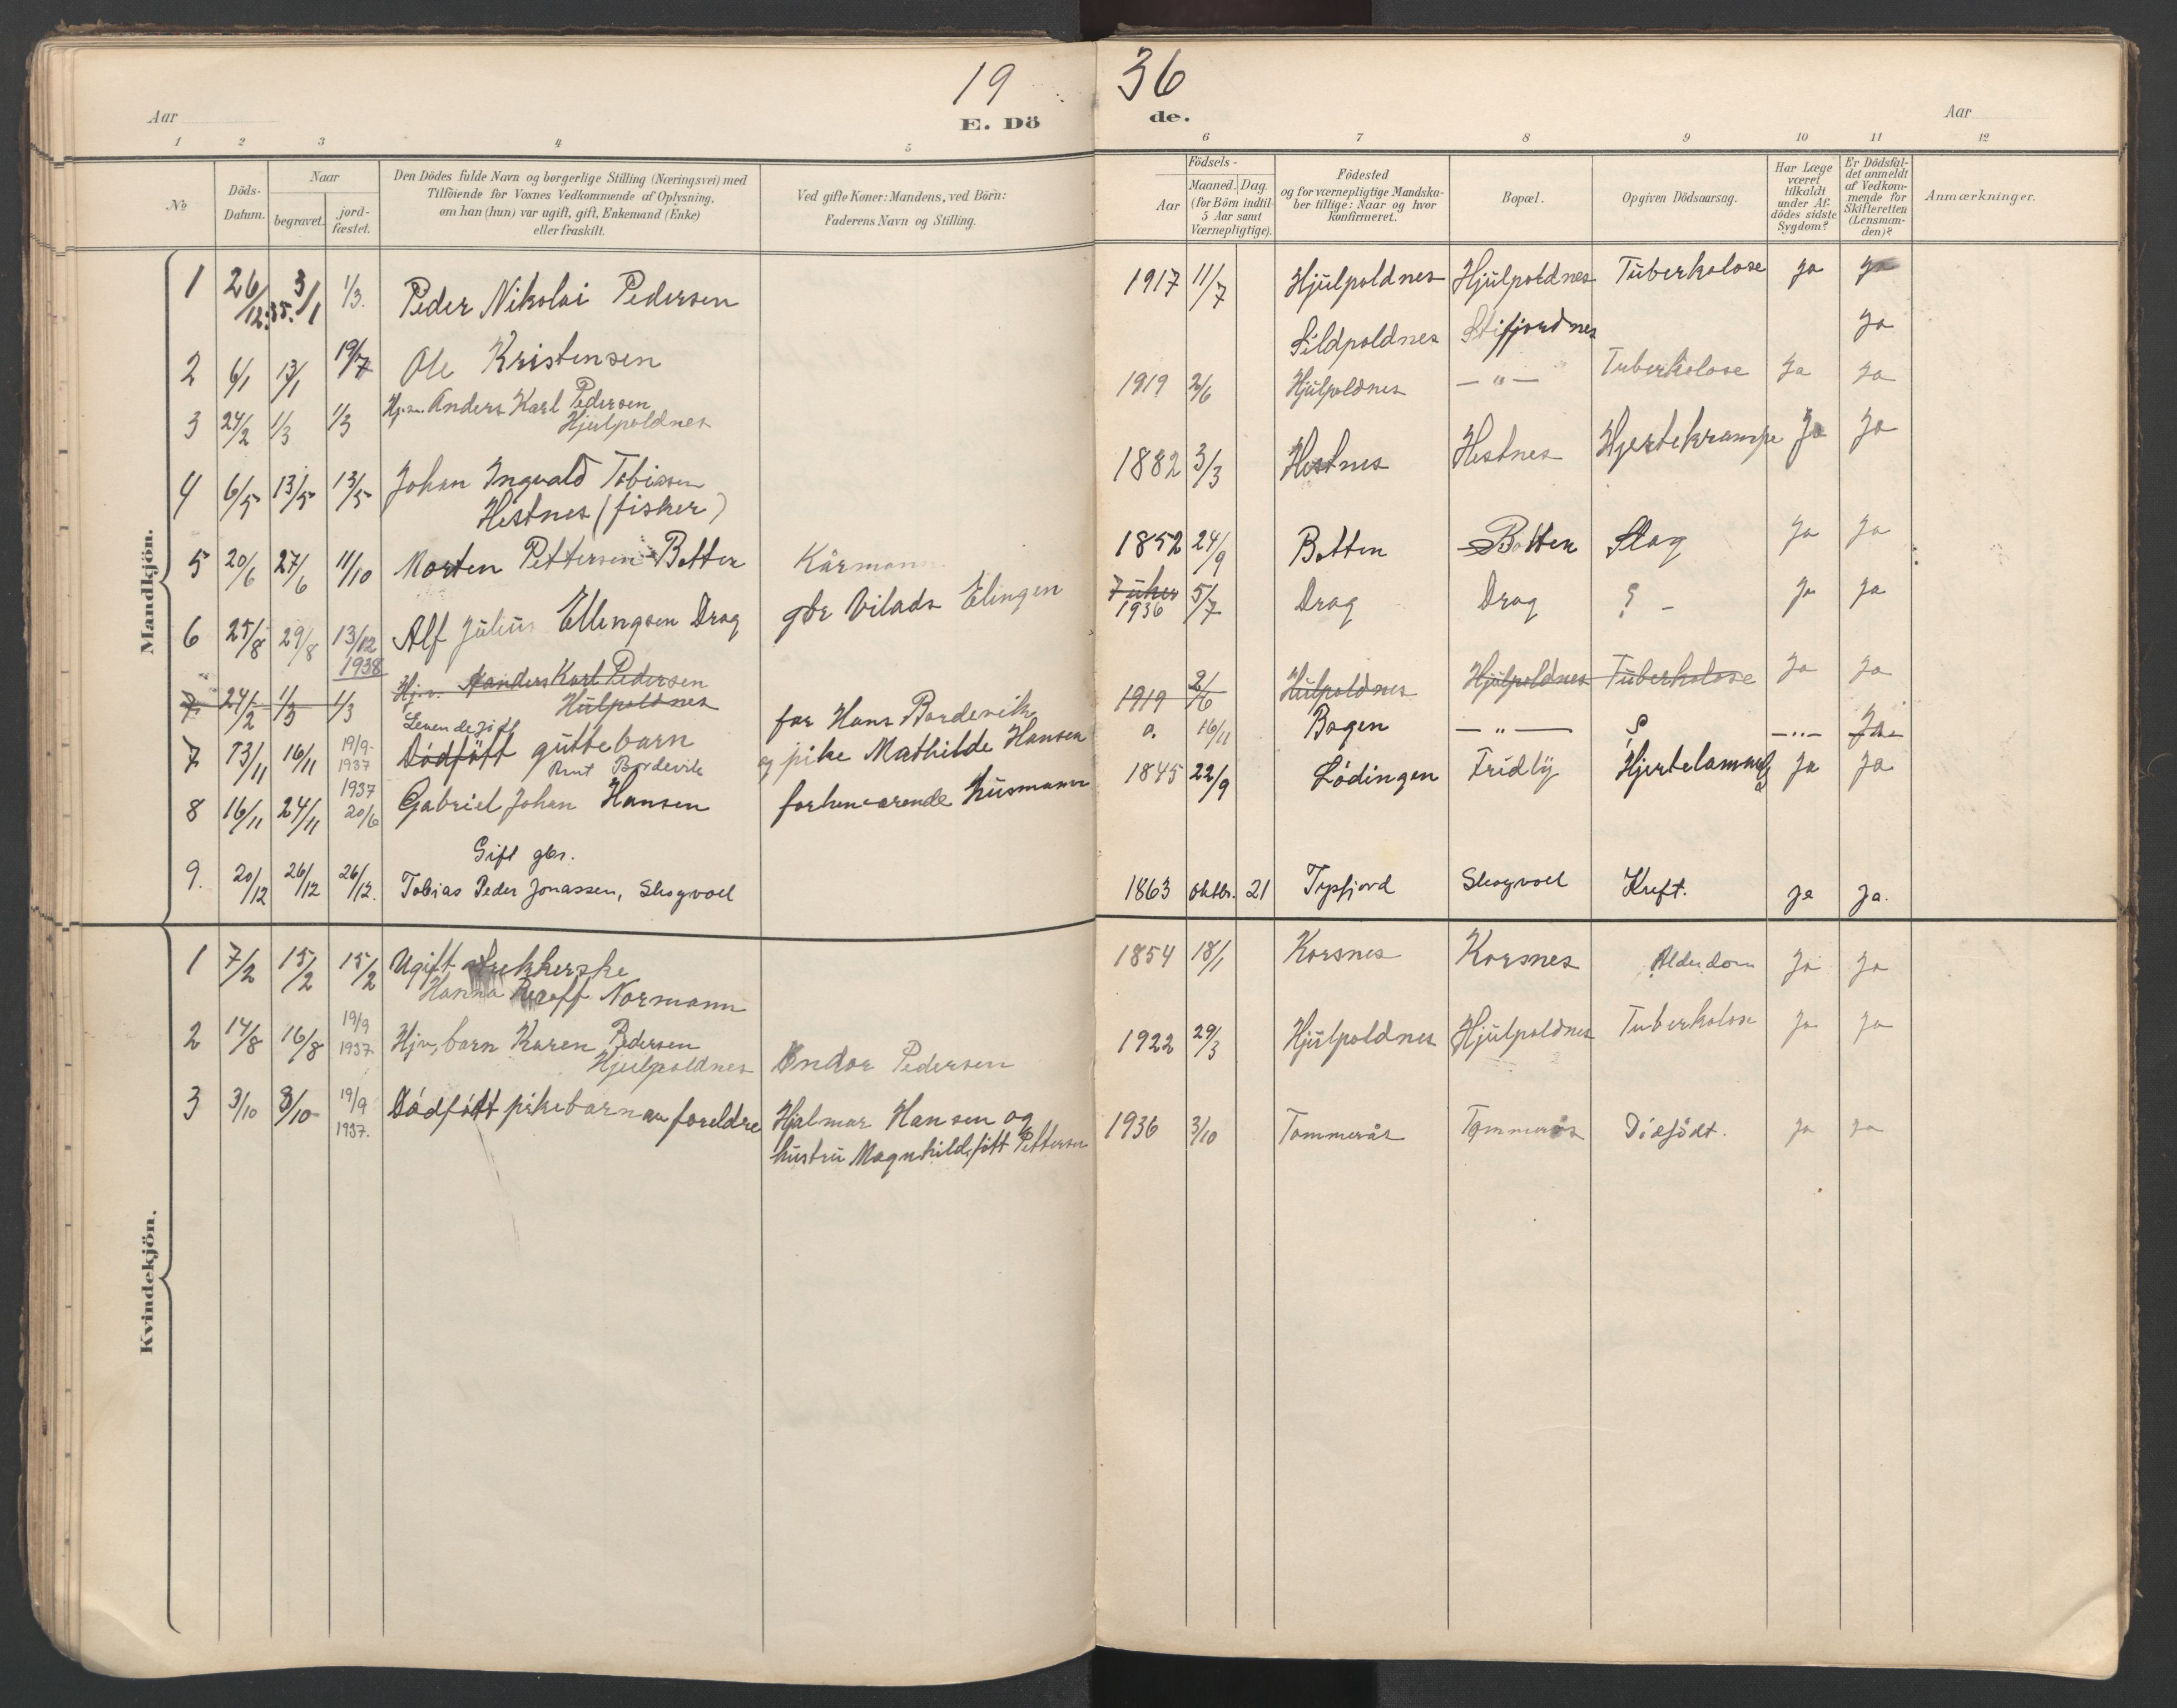 19 36
Aar
E. Dö de.
Aar
1 2 3 4 5 6 7 8 9 10 11 12
No
Döds-Datum.
Naar
begravet.
jord-fæstet.
Den Dödes fulde Navn og borgerlige Stilling (Næringsvei) med
Tilföiende for Voxnes Vedkommende af Oplysning,
om han (hun) var ugift, gift, Enkemand (Enke)
eller fraskilt.
Ved gifte Koner: Mandens, ved Börn:
Faderens Navn og Stilling.
Födsels-
Aar
Maaned. Dag.
(for Börn indtil
5 Aar samt
Værnepligtige).
Födested
og for værnepligtige Mandska-
ber tillige: Naar og hvor
Konfirmeret.
Bopæl.
Opgiven Dödsaarsag.
Har Læge
været
tilkaldt
under Af-
dödes sidste
Sygdom?
Er Dödsfal-
det anmeldt
af Vedkom-
mende for
Skifteretten
(Lensman-
den)?
Anmærkninger.
Mandkjön.
1 26/12.35. 3/1 1/3. Peder Nikolai Pedersen 1917 11/7 Hjulpoldnes Hjulpoldnes Tuberkolose Ja Ja
2 6/1 13/1 19/7 Ole Kristensen Sildpoldnes Stifjordnes Ja
3 24/2 1/3 1/3 Anders Karl Pedersen
Hjulpoldnes 1919 2/6 Hjulpoldnes — " — Tuberkolose Ja Ja
4 6/5 13/5 13/5 Johan Ingvald Tobiassen
Hestnes (fisker) 1882 3/3 Hestnes Hestnes Hjertekrampe Ja Ja
5 20/6 27/6 11/10 Morten Pettersen Botten Kårmann 1852 24/9 Botten Botten Slag Ja Ja
6 25/8 29/8 13/12
1938 Alf Julius Ellingsen Drag gbr Vilads Elingen 7 uker
1936 5/7 Drag Drag ? - Ja Ja
7. 24/2 1/3 1/3 Hjv. Anders Karl Pedersen
Hulpoldnes 1919 2/6 Hulpoldnes Hjulpoldnes Tuberkolose Ja Ja
7 13/11 16/11 19/9-
1937 Levendefött
Dödfött guttebarn
Bordevik far Hans Bordevik
og pike Mathilde Hansen 16/11 Bogen — " — — " —
8 16/11 24/11 1937
20/6 Gabriel Johan Hansen forhenværende husmann 1845 22/9 Lödingen Fridly Hjertelammelse Ja Ja
9. 20/12 26/12 26/12. Gift gbr.
Tobias Peder Jonassen, Skogvoll 1863 oktbr. 21 Tysfjord Skogvoll Kreft. Ja Ja.
Kvindekjön.
1 7/2 15/2 15/2 Ugift
Hanna Normann 1854 18/1 Korsnes Korsnes Alderdom Ja Ja
2 14/8 16/8 19/9
1937 Hjv. barn Karen Pedersen
Hjulpoldnes Endor Pedersen 1922 29/3 Hjulpoldnes Hjulpoldnes Tuberkolose Ja Ja
3 3/10 8/10 19/9
1937. Dödfött pikebarn av foreldre Hjalmar Hansen og
hustru Magnhild, fött Pettersen 1936 3/10 Tommerås Tommerås Dödfödt. Ja Ja